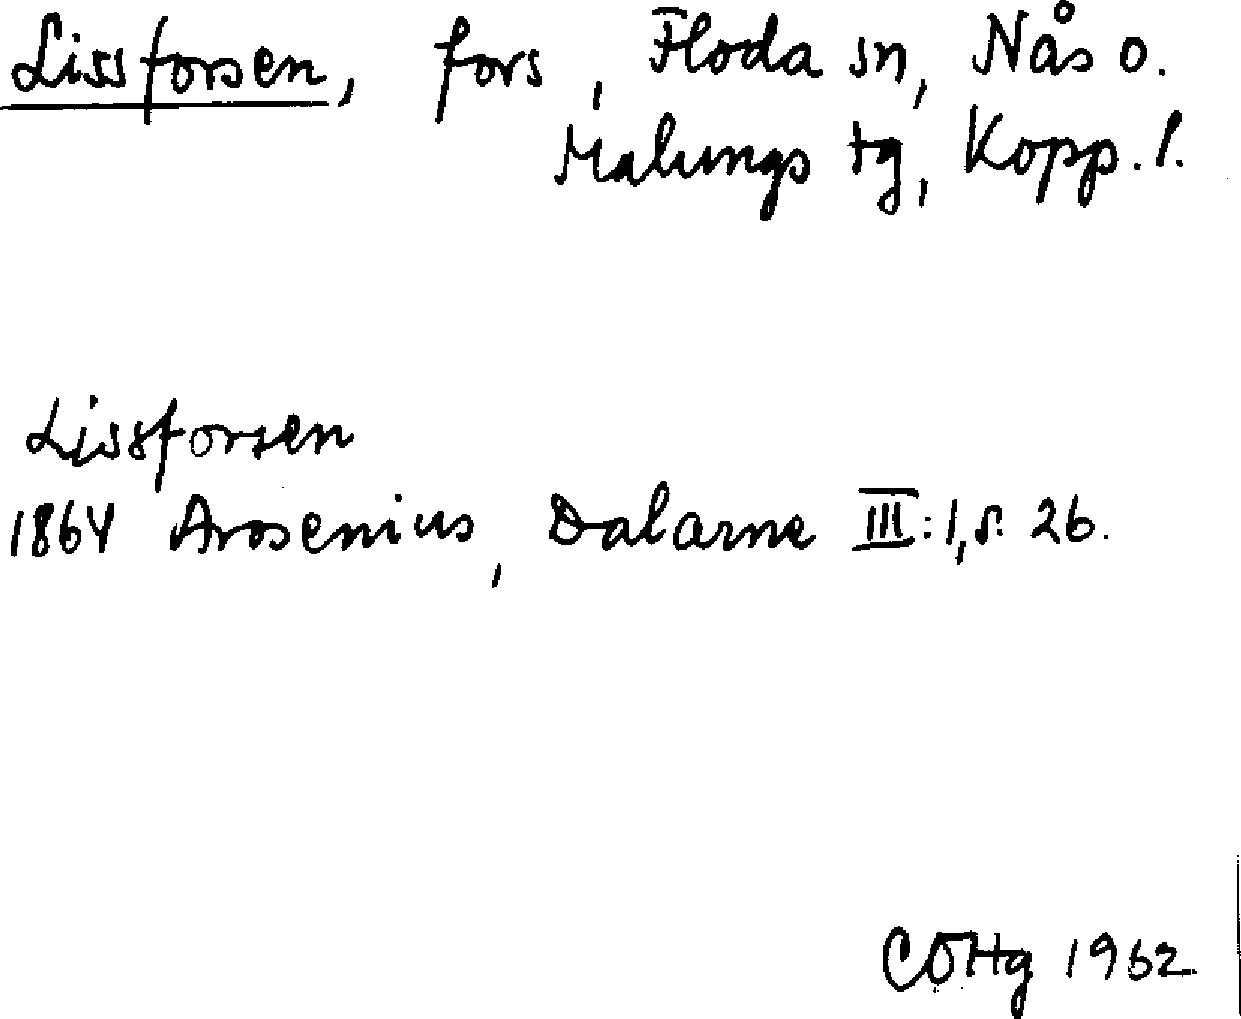 Lissforsen, fors, Floda sn, Nås o.
Malungs tg, Kopp. l.
Lissforsen
1864 Arosenius, Dalarne III:1, s. 26.
COHg 1962